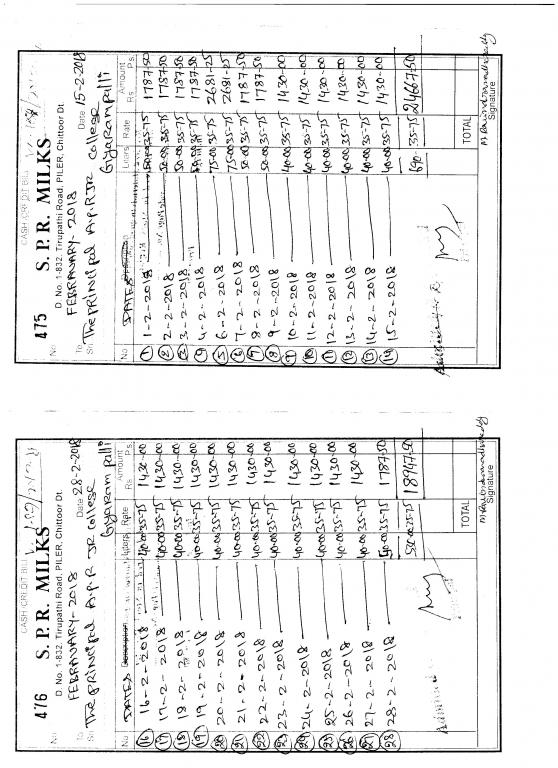 CASH/CREDIT BILL
475 S. P. R. MILKS
D. No. 1-832, Tirupathi Road, PILER, Chittoor Dt.
No
FEBRAVARY-2018 Date 15-2-2018
To
Sri The principal A.P.R JR college
Gyarampalli
No DATES Liters Rate Amount
Rs. Ps.
1 1-2-2018 50-00 35-75 1787-50
2 2-2-2018 50-00 35-75 1787-50
3 3-2-2018 50-00 35-75 1787-50
4 4-2-2018 50-00 35-75 1787-50
5 6-2-2018 75-00 35-75 2681-25
6 7-2-2018 75-00 35-75 2681-25
7 8-2-2018 50-00 35-75 1787-50
8 9-2-2018 50-00 35-75 1787-50
9 10-2-2018 40-00 35-75 1430-00
10 11-2-2018 40-00 35-75 1430-00
11 12-2-2018 40-00 35-75 1430-00
12 13-2-2018 40-00 35-75 1430-00
13 14-2-2018 40-00 35-75 1430-00
14 15-2-2018 40-00 35-75 1430-00
690 35-75 24667-50
TOTAL
Signature
CASH/CREDIT BILL
476 S. P. R. MILKS
D. No. 1-832, Tirupathi Road, PILER, Chittoor Dt.
No
FEBRAVARY-2018 Date 28-2-2018
To
Sri The principal A.P.R JR college
Gyarampalli
No DATES Liters Rate Amount
Rs. Ps.
16 16-2-2018 40-00 35-75 1430-00
17 17-2-2018 40-00 35-75 1430-00
18 18-2-2018 40-00 35-75 1430-00
19 19-2-2018 40-00 35-75 1430-00
20 20-2-2018 40-00 35-75 1430-00
21 21-2-2018 40-00 35-75 1430-00
22 22-2-2018 40-00 35-75 1430-00
23 23-2-2018 40-00 35-75 1430-00
24 24-2-2018 40-00 35-75 1430-00
25 25-2-2018 40-00 35-75 1430-00
26 26-2-2018 40-00 35-75 1430-00
27 27-2-2018 40-00 35-75 1430-00
28 28-2-2018 50-00 35-75 1787-50
530-00 35-75 18947-50
TOTAL
Signature